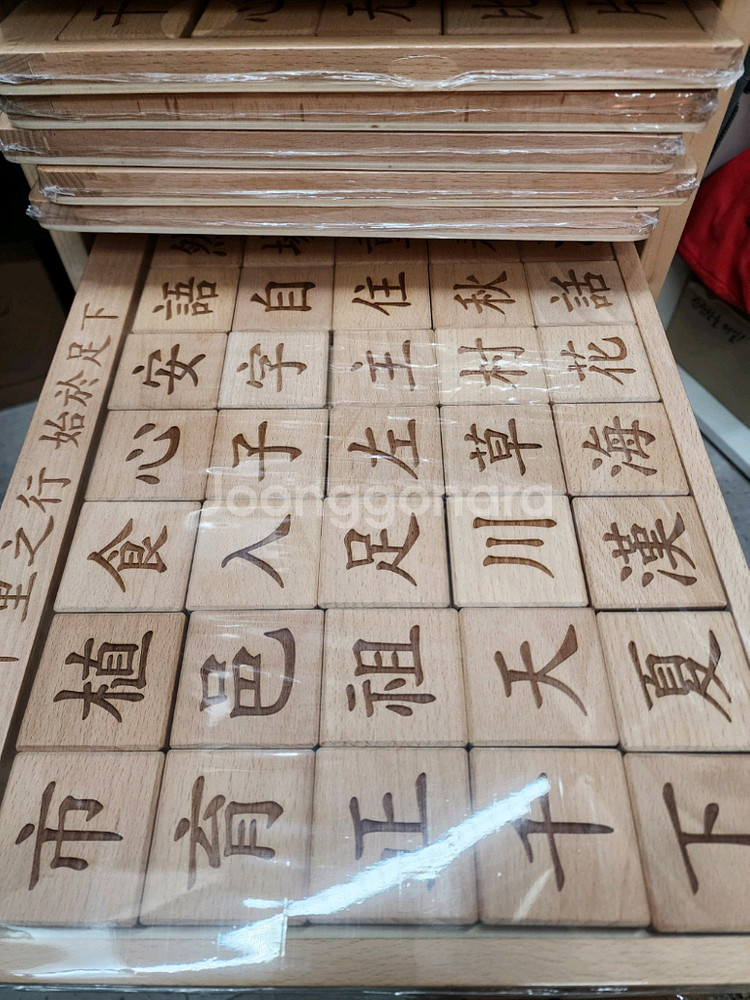 里之行 始於足下
市植食心安語
育邑入子字自
正祖足左主住
千天川草村秋
下夏漢海花話
Joonggonara